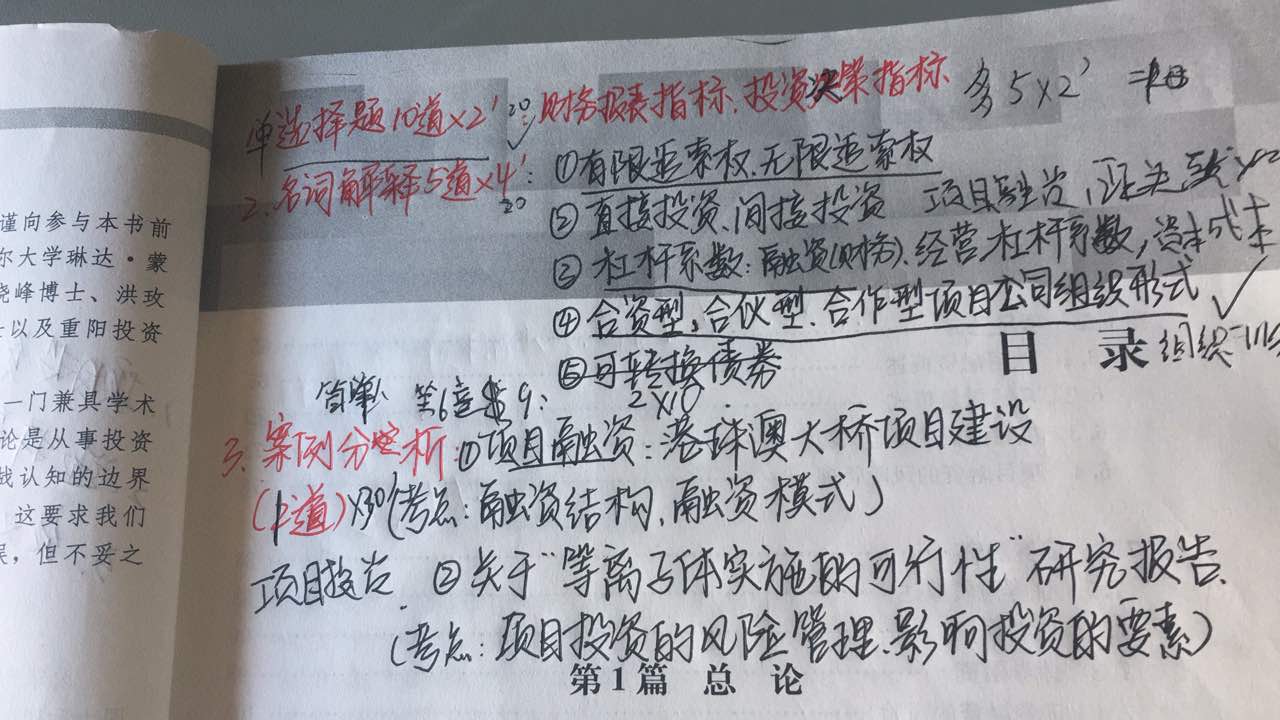 单选择题10道×2' 20 财务报表指标、投资决策指标 多5×2'
2、名词解释5道×4' 20 : ①有限追索权、无限追索权
②直接投资、间接投资 项目融资,
③杠杆系数:融资(财务)、经营杠杆系数, 资本成本
④合资型,合伙型、合作型项目公司组织形式 ✓
目 录 组织
⑤可转换债券
简单 第6章 9: 2×10
3、案例分析:①项目融资:港珠澳大桥项目建设
道)×30'(考点:融资结构、融资模式)
项目投资. ②关于“等离子体实施的可行性”研究报告.
(考点:项目投资的风险管理、影响投资的要素)
第1篇 总 论
谨向参与本书前
尔大学琳达·蒙
晓峰博士、洪玫
以及重阳投资
一门兼具学术
论是从事投资
战认知的边界
这要求我们
误,但不妥之